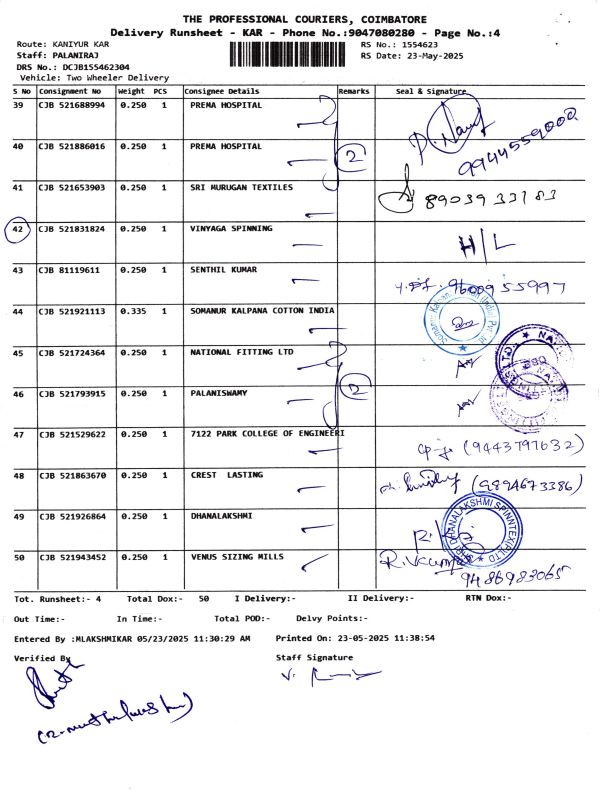 THE PROFESSIONAL COURIERS, COIMBATORE
Delivery Runsheet - KAR - Phone No.:9047080280 - Page No.:4
Route: KANIYUR KAR
RS No.: 1554623
Staff: PALANIRAJ
RS Date: 23-May-2025
DRS No.: DCJB155462304
Vehicle: Two Wheeler Delivery
S No Consignment No Weight PCS Consignee Details Remarks Seal & Signature
39 CJB 521688994 0.250 1 PREMA HOSPITAL
9944559000
40 CJB 521886016 0.250 1 PREMA HOSPITAL 2
41 CJB 521653903 0.250 1 SRI MURUGAN TEXTILES 8903933183
42 CJB 521831824 0.250 1 VINYAGA SPINNING H/L
43 CJB 81119611 0.250 1 SENTHIL KUMAR 9600955997
44 CJB 521921113 0.335 1 SOMANUR KALPANA COTTON INDIA
45 CJB 521724364 0.250 1 NATIONAL FITTING LTD
46 CJB 521793915 0.250 1 PALANISWAMY 2
47 CJB 521529622 0.250 1 7122 PARK COLLEGE OF ENGINEERI (9443797632)
48 CJB 521863670 0.250 1 CREST LASTING (9894673386)
49 CJB 521926864 0.250 1 DHANALAKSHMI
50 CJB 521943452 0.250 1 VENUS SIZING MILLS R.Vkumar
9486983065
Tot. Runsheet:- 4 Total Dox:- 50 I Delivery:- II Delivery:- RTN Dox:-
Out Time:- In Time:- Total POD:- Delvy Points:-
Entered By :MLAKSHMIKAR 05/23/2025 11:30:29 AM Printed On: 23-05-2025 11:38:54
Verified By Staff Signature